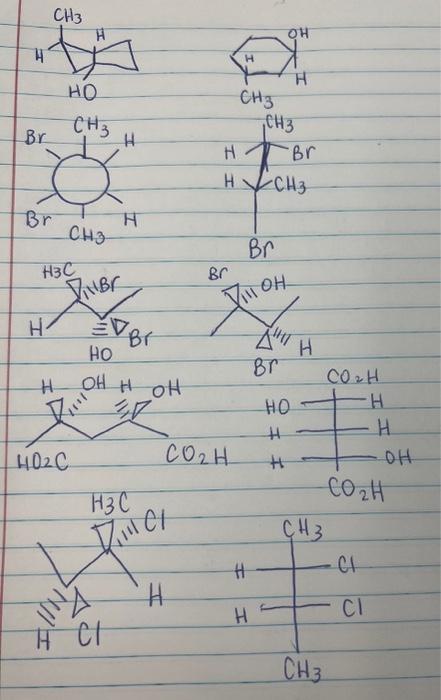 CH3
H
H
HO
OH
H
H
CH3
CH3
Br
H
Br
H
CH3
CH3
H
Br
H
CH3
Br
H3C
Br
H
HO
Br
Br
OH
Br
H
H
OH
H
OH
HO2C
CO2H
CO2H
HO
H
H
H
H
OH
CO2H
H3C
Cl
H
H
Cl
CH3
H
Cl
H
Cl
CH3